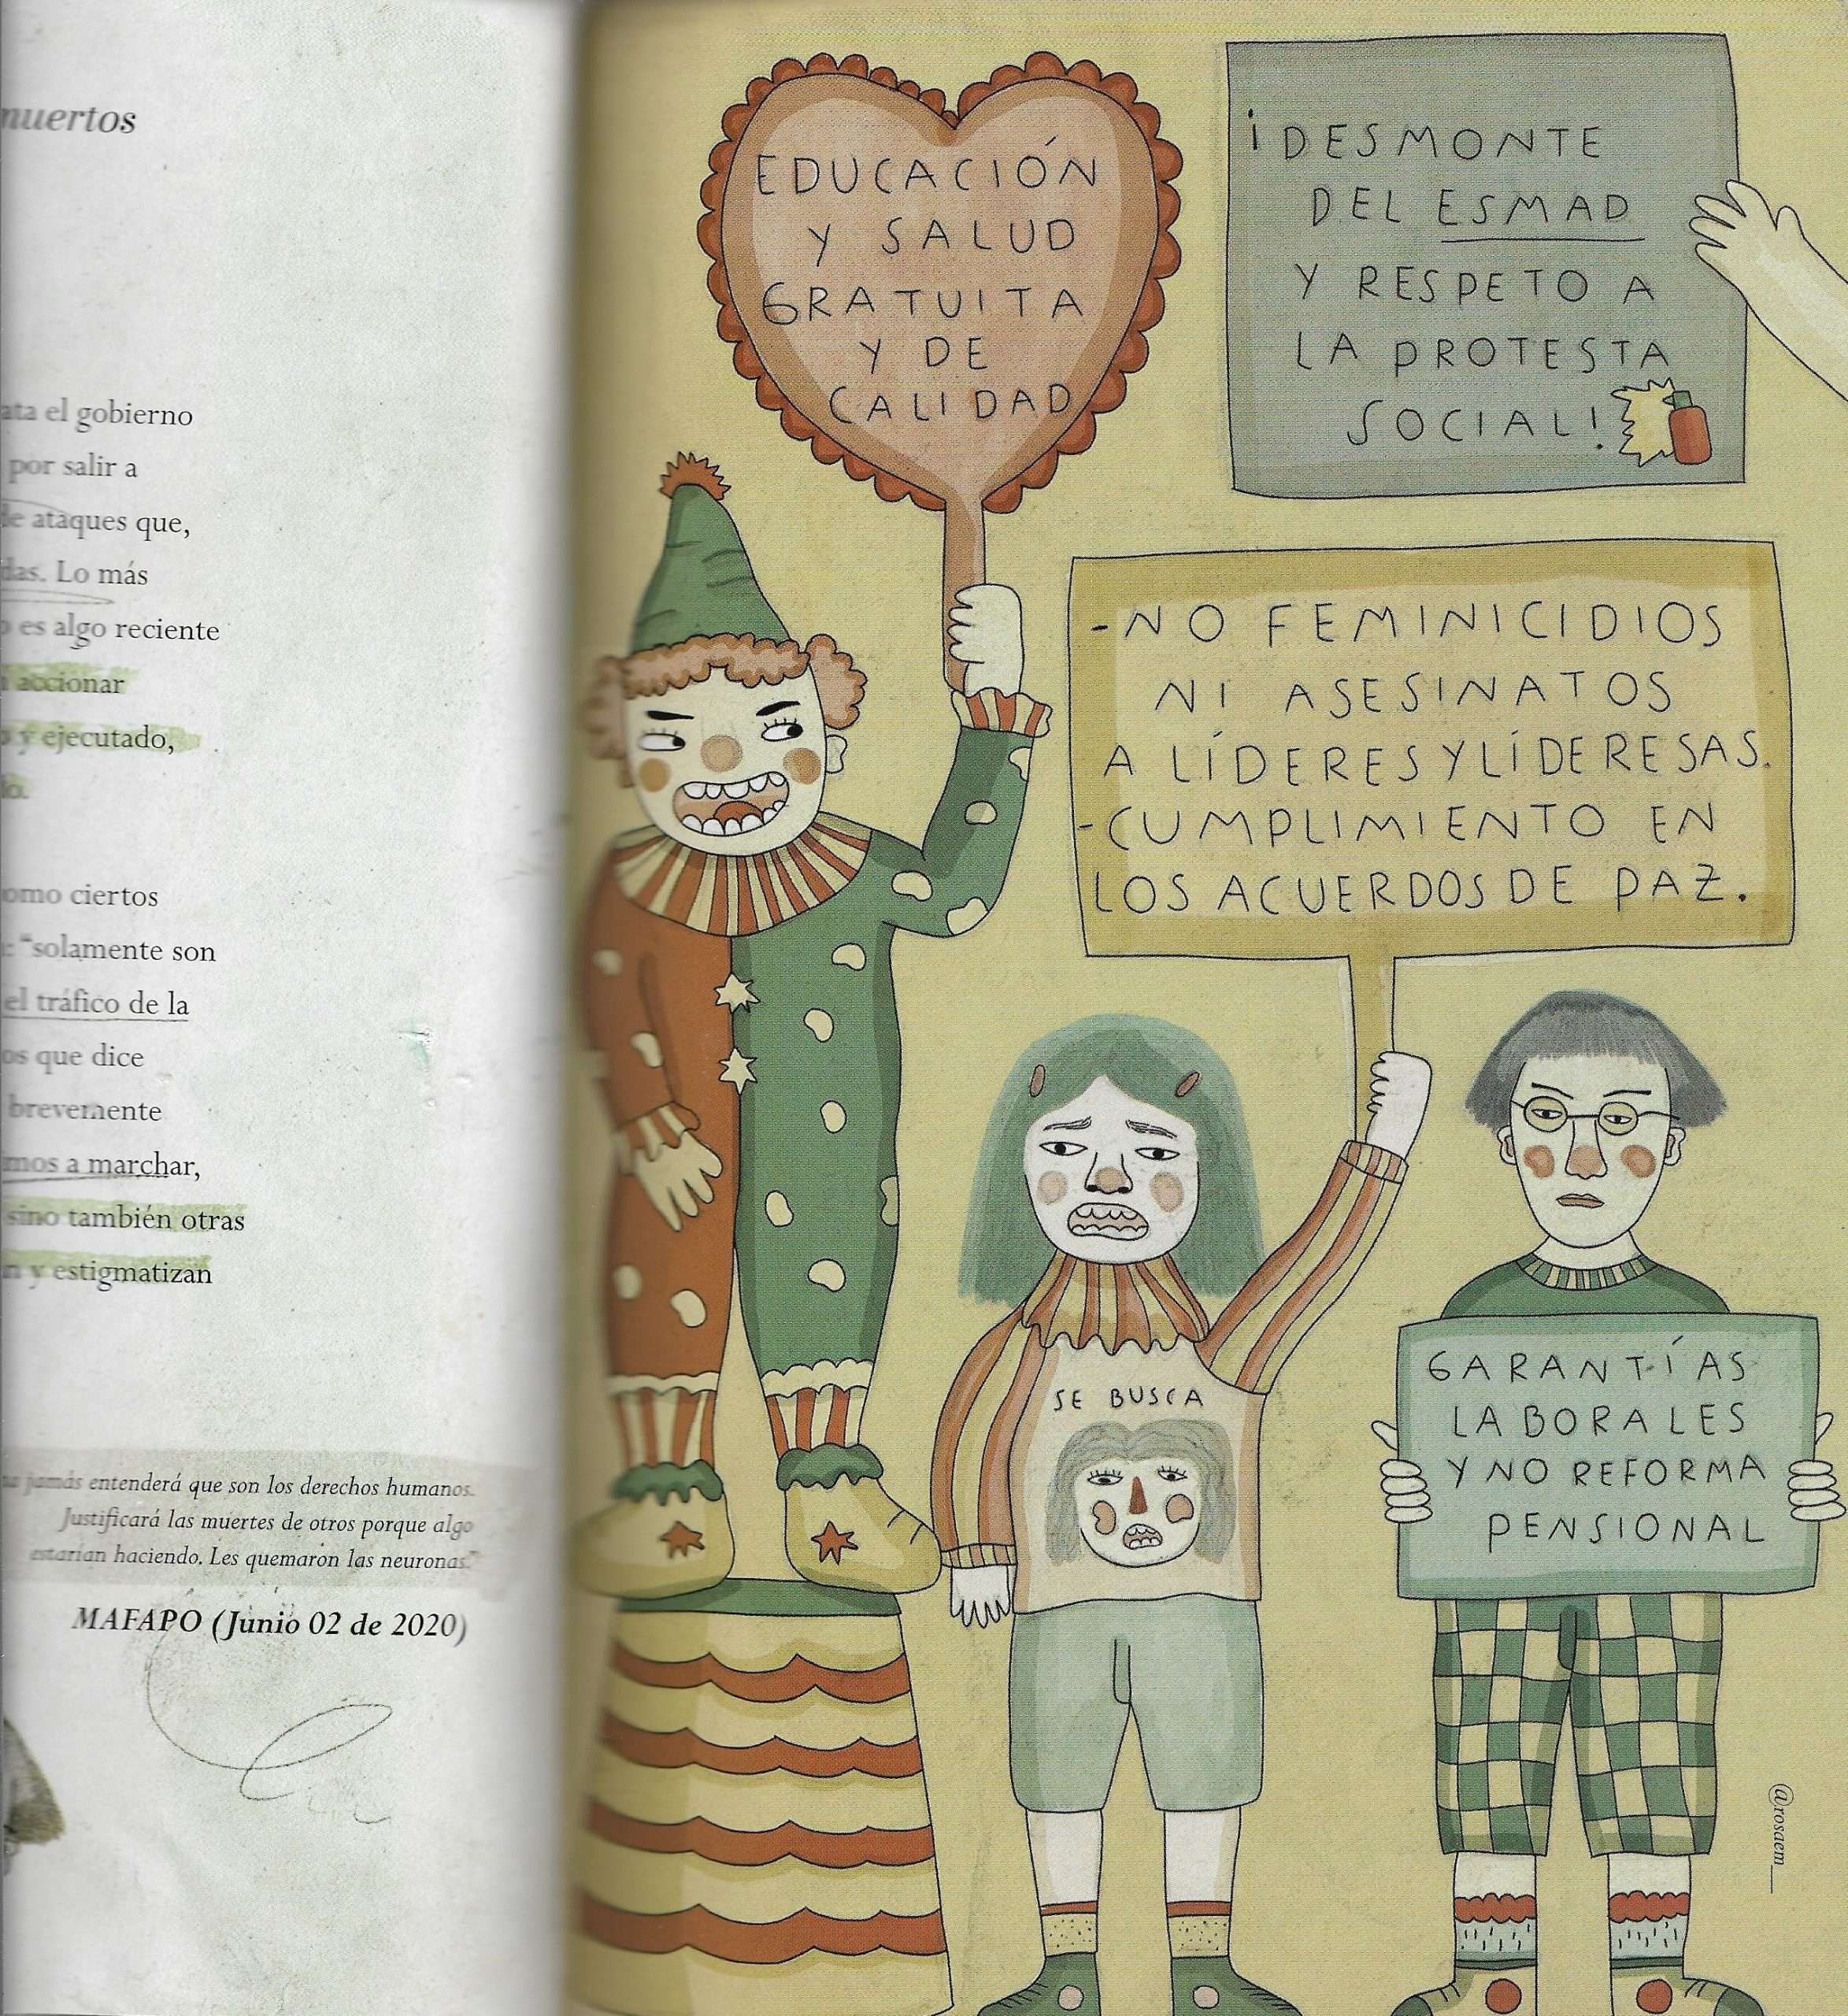 muertos
el gobierno
por salir a
de ataques que,
Lo más
es algo reciente
accionar
y ejecutado,
ciertos
"solamente son
el tráfico de la
que dice
brevemente
a marchar,
sino también otras
y estigmatizan
jamás entenderá que son los derechos humanos.
Justificará las muertes de otros porque algo
estarían haciendo. Les quemaron las neuronas."
MAFAPO (Junio 02 de 2020)
EDUCACIÓN
Y SALUD
GRATUITA
Y DE
CALIDAD
¡DESMONTE
DEL ESMAD
Y RESPETO A
LA PROTESTA
SOCIAL!
-NO FEMINICIDIOS
NI ASESINATOS
A LÍDERES Y LÍDERESAS.
-CUMPLIMIENTO EN
LOS ACUERDOS DE PAZ.
SE BUSCA
GARANTÍAS
LABORALES
Y NO REFORMA
PENSIONAL
@rosaem__